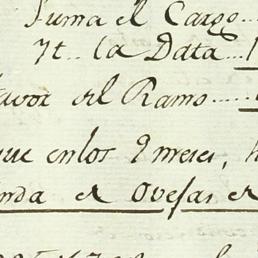 Suma el Cargo...
Yt.. la Data...1
avor del Ramo.....
que en los 9 meses, h
nda de Ovejas de